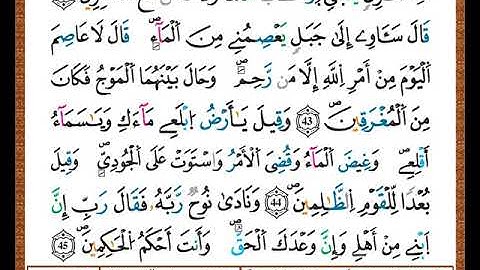 قَالَ سَـَٔاوِے إِلَىٰ جَبَلٍ يَعْصِمُنِے مِنَ ٱلْمَآءِ قَالَ لَا عَاصِمَ
ٱلْيَوْمَ مِنْ أَمْرِ ٱللَّهِ إِلَّا مَن رَّحِمَ وَحَالَ بَيْنَهُمَا ٱلْمَوْجُ فَكَانَ
مِنَ ٱلْمُغْرَقِينَ 43 وَقِيلَ يَـٰٓأَرْضُ ٱبْلَعِے مَآءَكِ وَيَـٰسَمَآءُ
أَقْلِعِے وَغِيضَ ٱلْمَآءُ وَقُضِىَ ٱلْأَمْرُ وَٱسْتَوَتْ عَلَى ٱلْجُودِيِّ وَقِيلَ
بُعْدًا لِّلْقَوْمِ ٱلظَّـٰلِمِينَ 44 وَنَادَىٰ نُوحٌ رَّبَّهُۥ فَقَالَ رَبِّ إِنَّ
ٱبْنِے مِنْ أَهْلِے وَإِنَّ وَعْدَكَ ٱلْحَقُّ وَأَنتَ أَحْكَمُ ٱلْحَـٰكِمِينَ 45